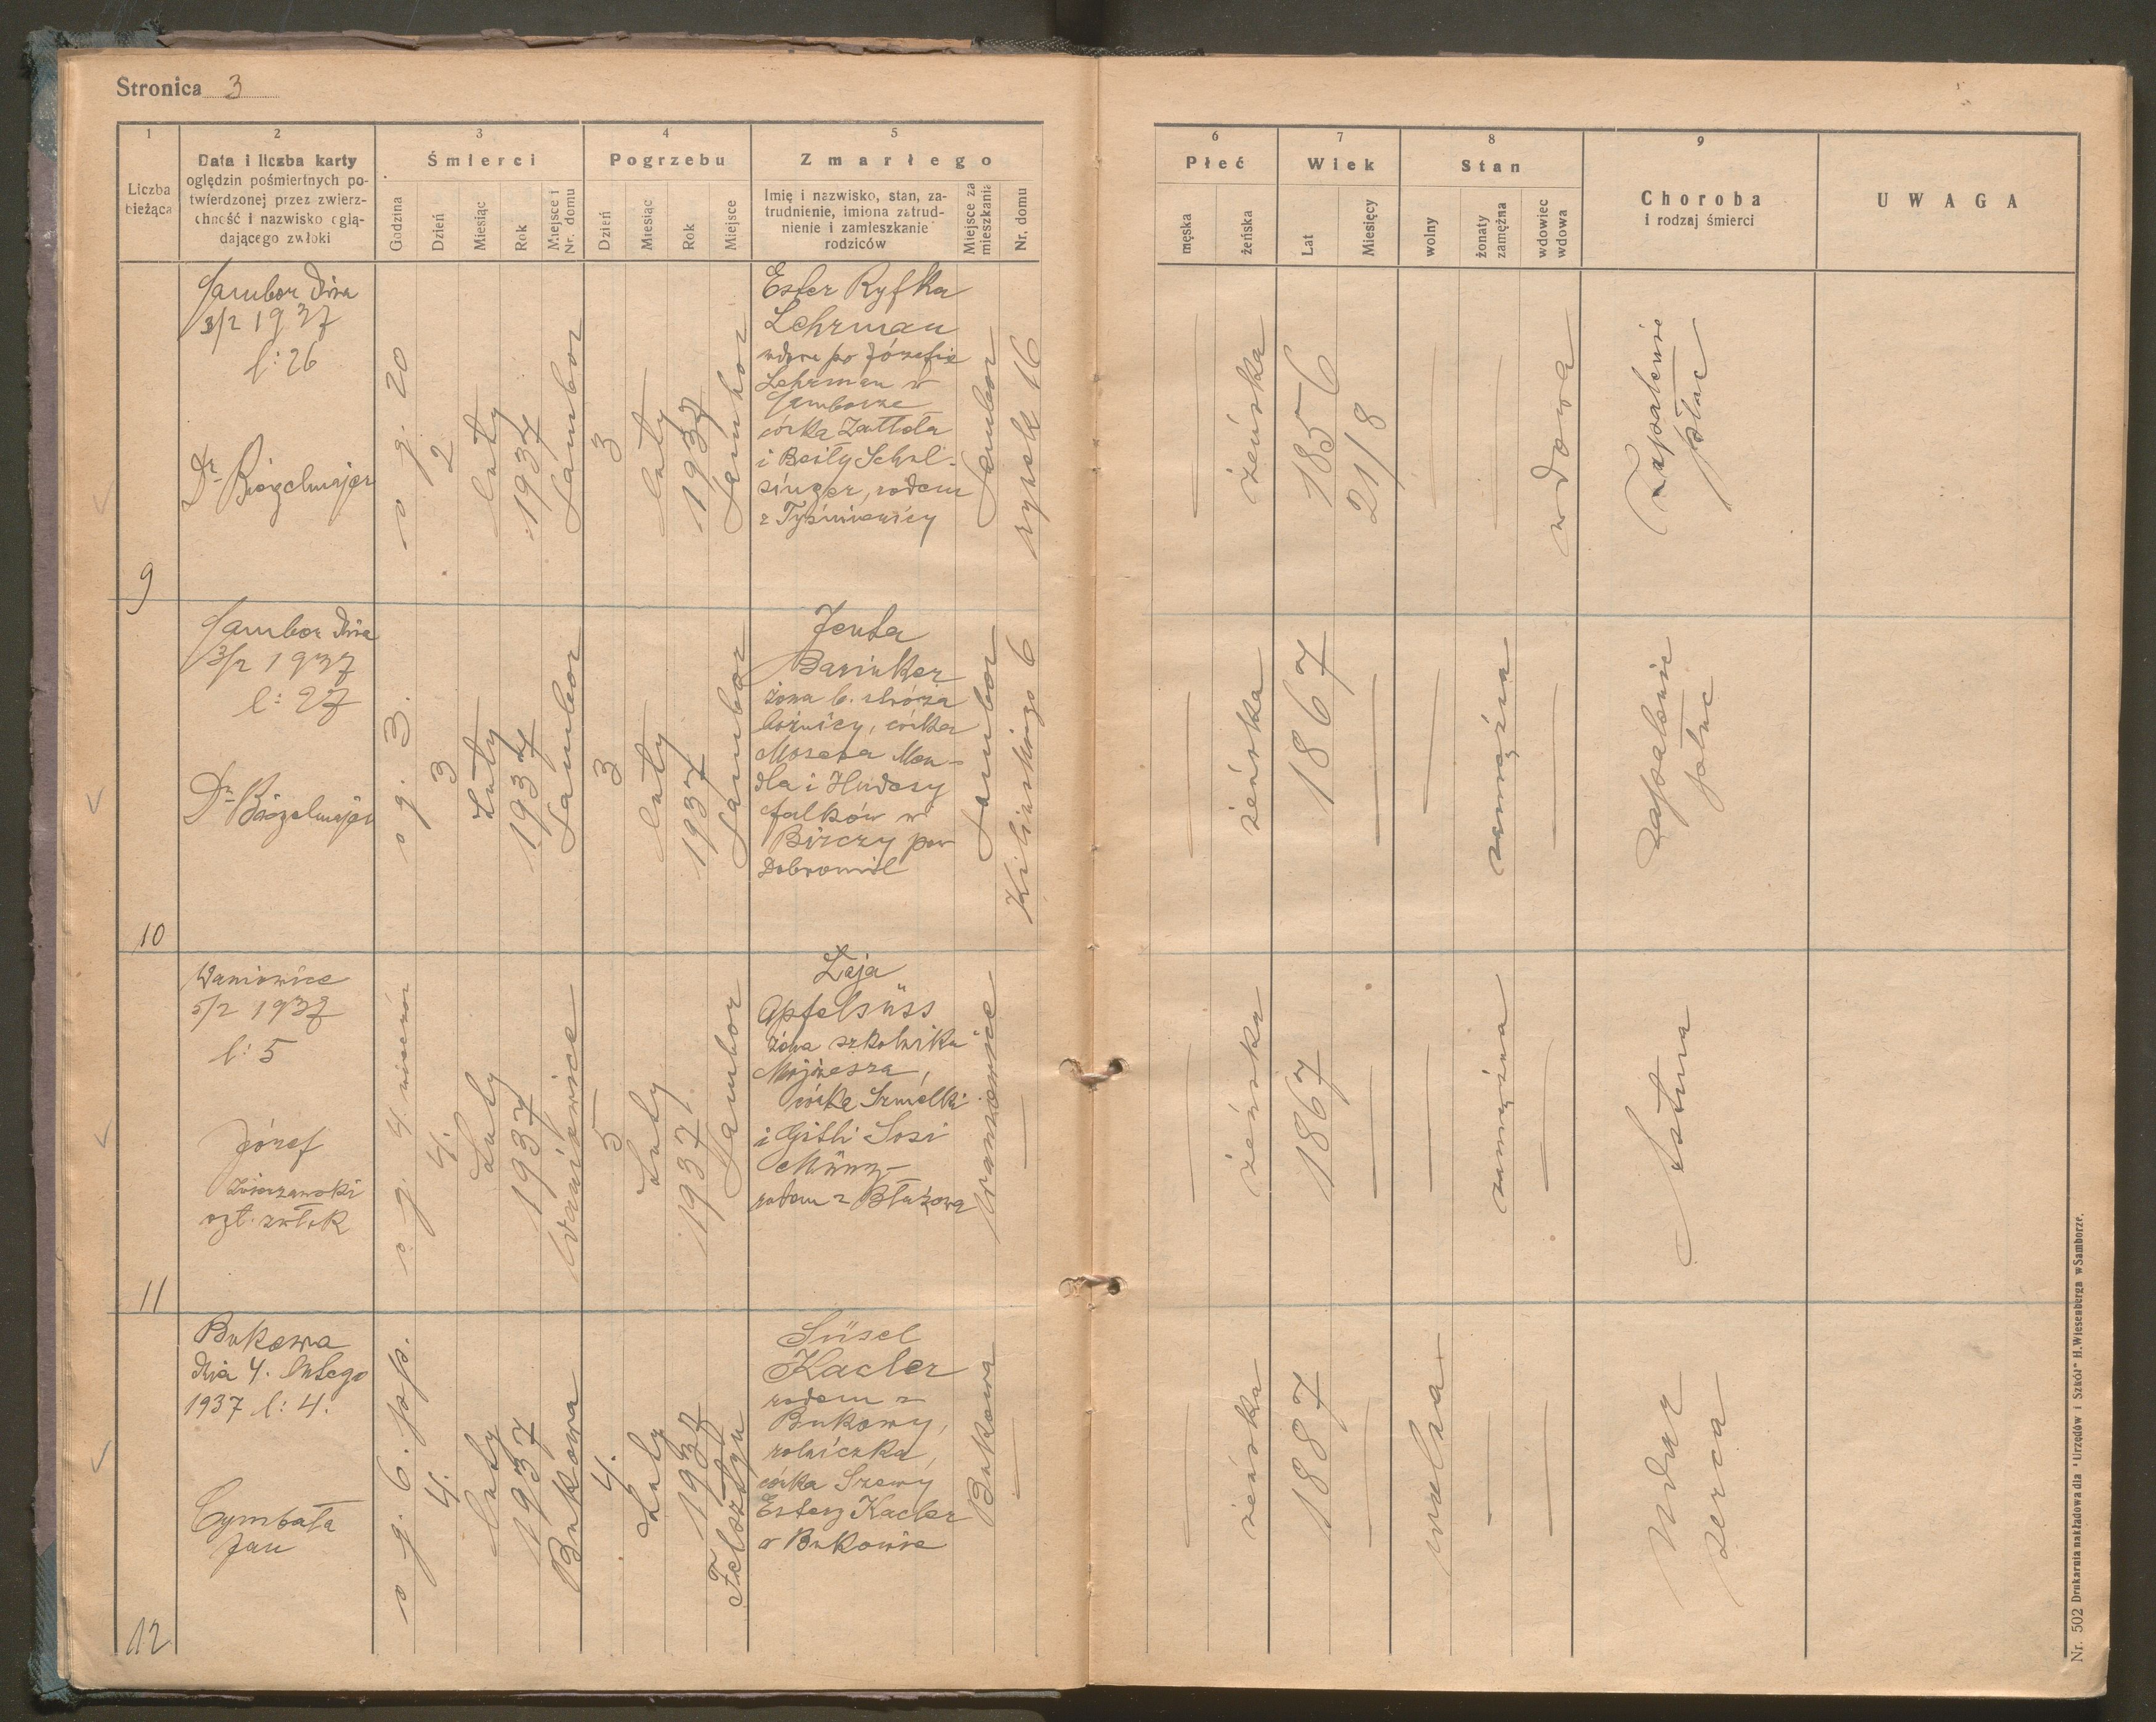 Stronica 3
1
2
3
4
5
Liczba
bieżąca
Data i liczba karty
oględzin pośmiertnych po-
twierdzonej przez zwierz-
chność i nazwisko oglą-
dającego zwłoki
Śmierci
Godzina
Dzień
Miesiąc
Rok
Miejsce i
Nr. domu
Pogrzebu
Dzień
Miesiąc
Rok
Miejsce
Zmarłego
Imię i nazwisko, stan, za-
trudnienie, imiona zatrud-
nienie i zamieszkanie
rodziców
Miejsce za
mieszkania
Nr. domu
6
7
8
9
Płeć
męska
żeńska
Wiek
Lat
Miesięcy
Stan
wolny
żonaty
zamężna
wdowiec
wdowa
Choroba
i rodzaj śmierci
UWAGA
9
Sambor dnia
3/2 1937
l: 26
Dr
o g. 20
2
luty
1937
Sambor
3
luty
1937
Sambor
Ester Ryfka
Lehrman
wdowa po Józefie
Lehrman w
Samborze
córka
i Beily Schul-
singer, rodem
z Tyśmienicy
Sambor
rynek 16
żeńska
1856
21/8
wdowa
Zapalenie
płuc
10
Sambor dnia
3/2 1937
l: 27
Dr
o g. 3.
3
Luty
1937
Sambor
3
luty
1937
Sambor
Jenta
Barinker
żona b. stróża
bożnicy, córka
Mosesa Men-
dla i Hudesy
Falków w
Birczy pow
Dobromil
Sambor
Kilińskiego 6
żeńska
1867
zamężna
Zapalenie
płuc
11
Waniowice
5/2 1937
l: 5
Józef
ogl. zwłok
o g. 4.
4.
Luty
1937
Waniowice
5
Luty
1937.
Sambor
Łaja
Apfelsüss
żona szkolnika
Mojżesza,
córka Szmelki
i Gitli Sosi
Münz
rodem z Błażowa
Waniowice
żeńska
1867
zamężna
Astma
12
Bukowa
dnia 4. lutego
1937 l: 4.
Cymbała
Jan
o g. 6. pop.
4.
luty
1937
Bukowa
4.
Luty
1937
Felsztyn
Süsel
Kacler
rodem z
Bukowy,
rolniczka,
córka Szewy
Estery Kacler
w Bukowie
Bukowa
żeńska
1887
wolna
Udar
serca
Nr. 502 Drukarnia nakładowa dla "Urzędów i Szkół" H.Wiesenberga w Samborze.